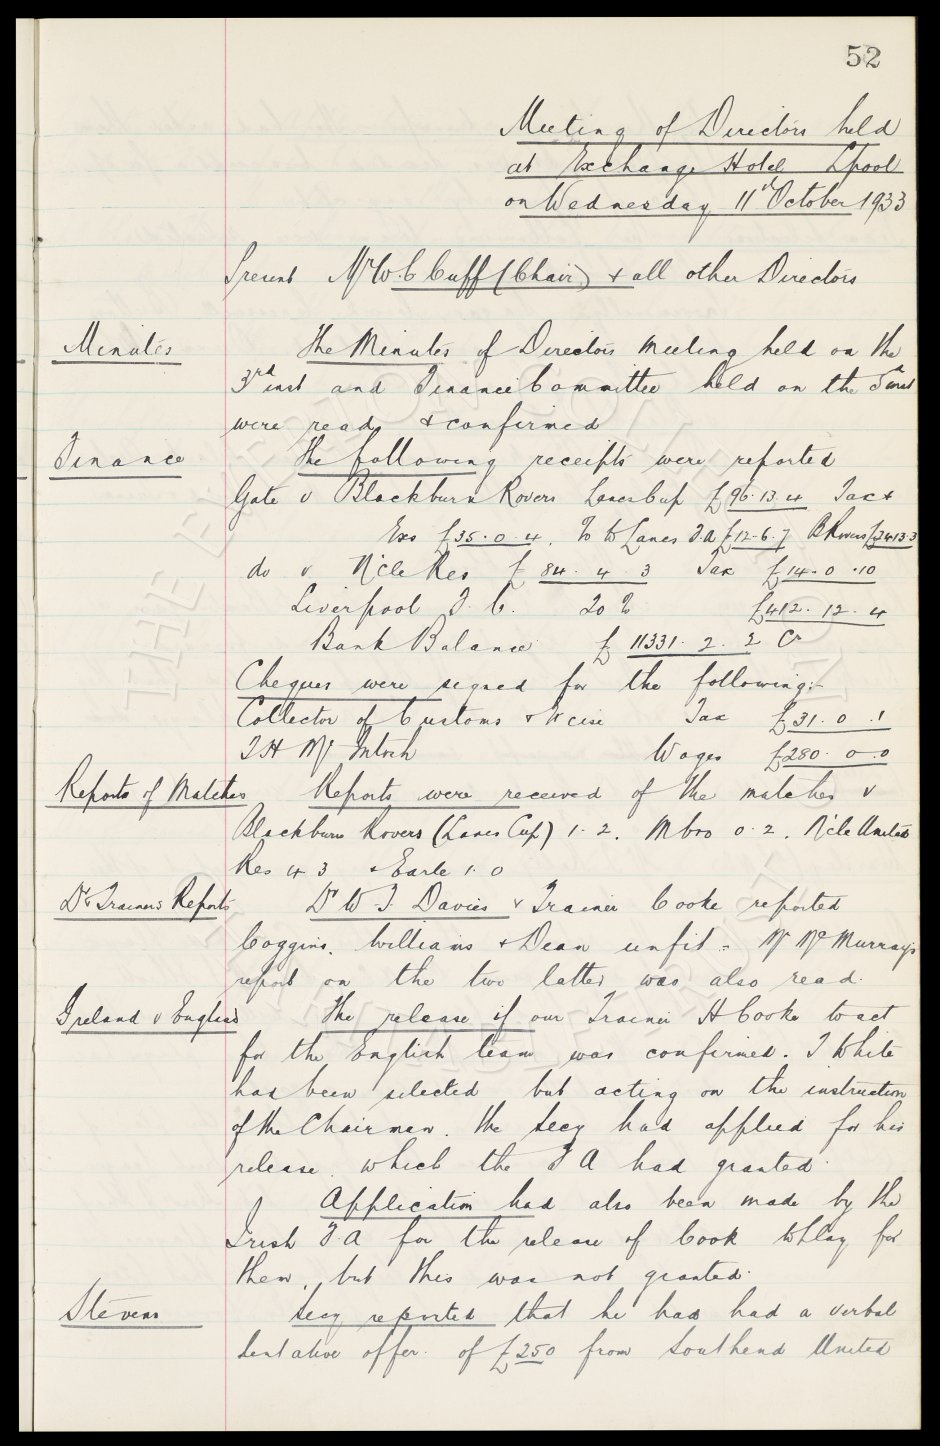 52
Meeting of Directors held
at Exchange Hotel Lpool
on Wednesday 11th October 1933
Present Mr W. C Cuff (Chair) & all other Directors
Minutes The Minutes of Directors Meeting held on the
3rd inst and Finance Committee held on the inst
were read & confirmed
Finance The following receipts were reported
Gate v Blackburn Rovers Lancs Cup £96. 13. 4 Tax &
Exs £35. 0. 4. % to Lancs F.A £12. 6. 7 B Rovers £24 13. 3
do v N'cle Res £84. 4. 3 Tax £14. 0. 10
Liverpool F. C. 20 % £412. 12. 4
Bank Balance £11331. 2. 2 Cr
Cheques were signed for the following:-
Collector of Customs & Xcise Tax £31. 0. 1
T H Mc Intosh Wages £280. 0. 0
Reports of Matches Reports were received of the matches v
Blackburn Rovers (Lancs Cup) 1. 2. Mbro 0. 2. N'cle United
Res 4 3 & Earle 1. 0
Dr & Trainers Reports Dr W. F. Davies & Trainer Cooke reported
Coggins, Williams & Dean unfit - Mr Mc Murray's
report on the two latter was also read.
Ireland v England The release if our Trainer H Cooke to act
for the English team was confirmed. T White
had been selected but acting on the instruction
of the Chairman. the Secy had applied for his
release. which the F A had granted.
Application had also been made by the
Irish F.A for the release of Cook to play for
them, but this was not granted.
Stevens Secy reported that he had had a verbal
tentative offer. of £250 from Southend United
THE EVERTON FOOTBALL